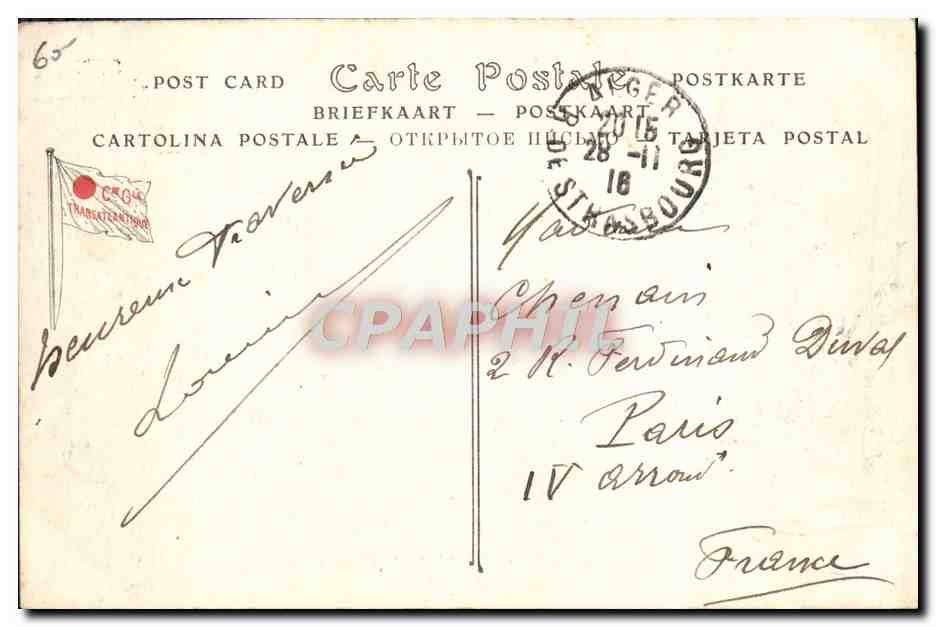 65
POST CARD Carte Postale POSTKARTE
BRIEFKAART — POSTKAART
CARTOLINA POSTALE — ОТКРЫТОЕ ПИСЬМО — TARJETA POSTAL
ALGER
20 15
28 -11
16
R. DE STRASBOURG
Cie Gle
TRANSATLANTIQUE
heureuse traversée
Louise
Chenain
2 R. Ferdinand Duval
Paris
IV arrondt.
France
CPAPHIL